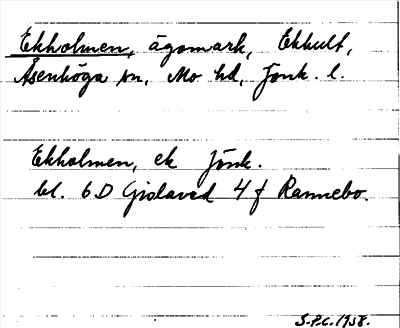 Ekholmen, ägomark, Ekhult,
Åsenhöga sn, Mo hd, Jönk. l.
Ekholmen, ek Jönk.
bl. 6D Gislaved 4 f Rannebo.
S.P.C. 1958.